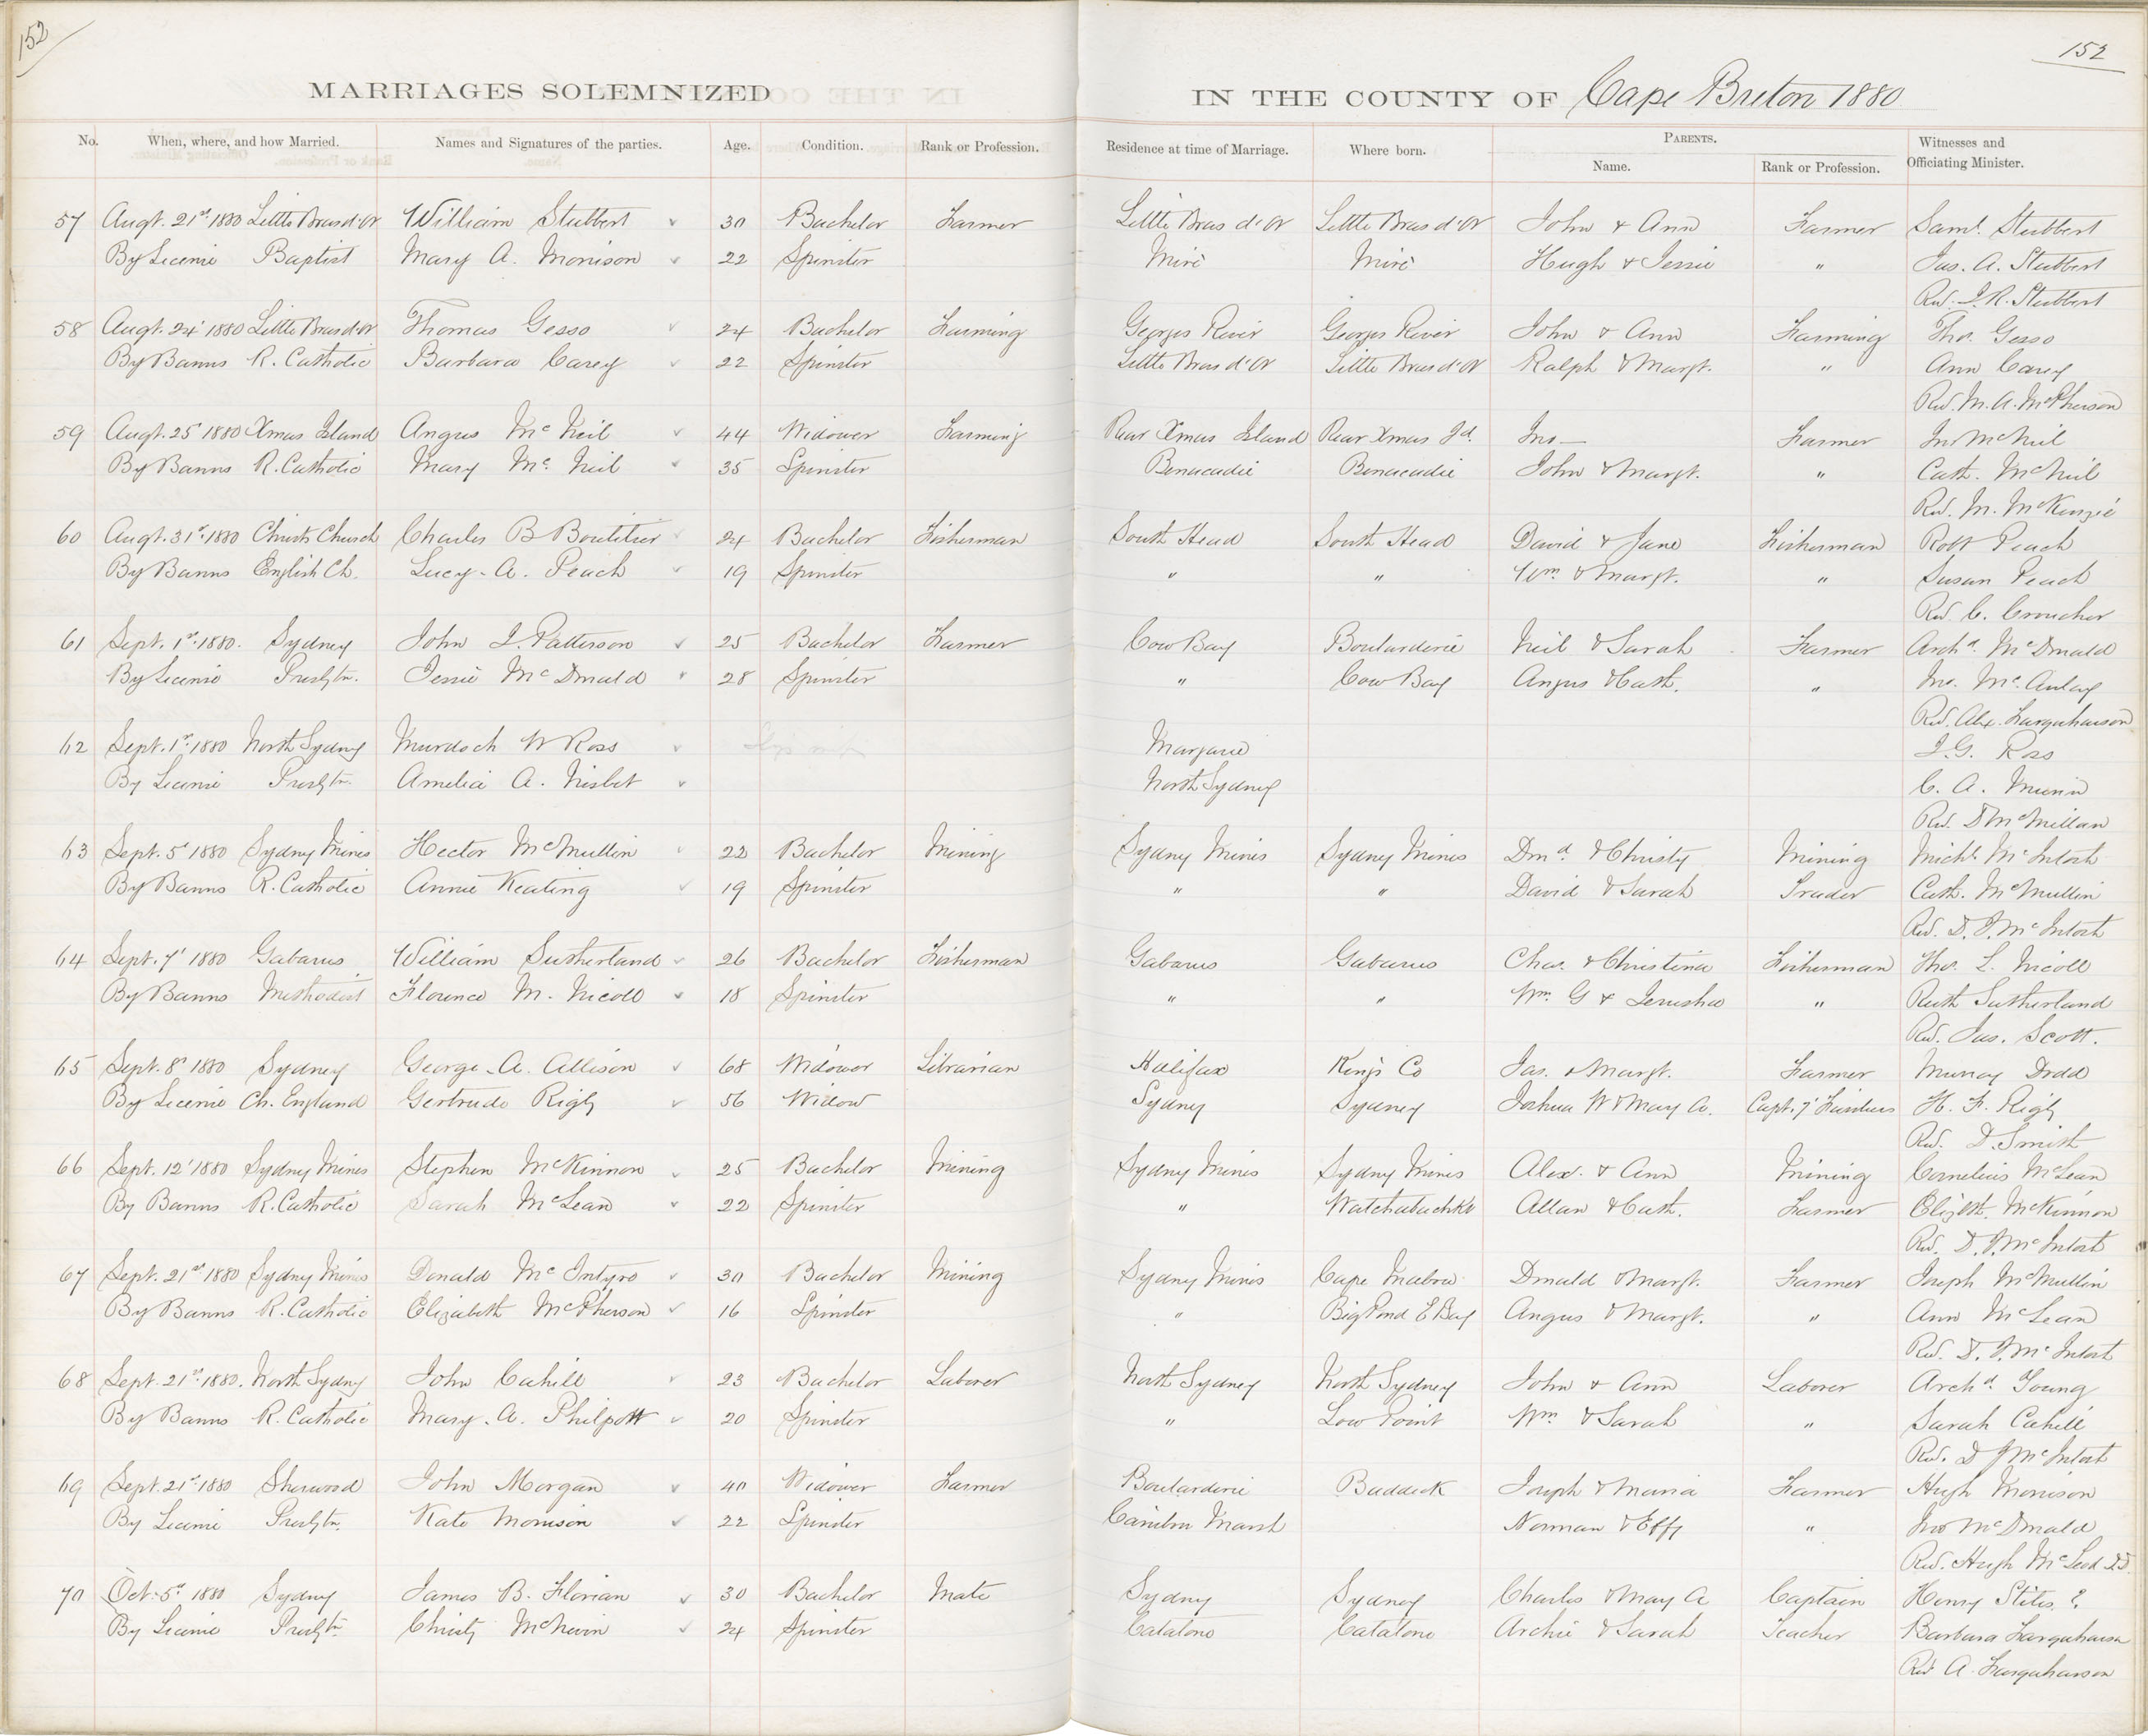 152
152
MARRIAGES SOLEMNIZED IN THE COUNTY OF Cape Breton 1880
No. When, where, and how Married. Names and Signatures of the parties. Age. Condition. Rank or Profession. Residence at time of Marriage. Where born. PARENTS. Name. Rank or Profession. Witnesses and Officiating Minister.
57 Augt. 21st 1880 Little Bras d'Or William Stubbert 30 Bachelor Farmer Little Bras d'Or Little Bras d'Or John & Ann Farmer Saml. Stubbert
By Licence Baptist Mary A. Morrison 22 Spinster Miré Miré Hugh & Jessie " Jas. A. Stubbert
Rev. J. R. Stubbert
58 Augt. 24' 1880 Little Bras d'Or Thomas Gesso 24 Bachelor Farming Georges River Georges River John & Ann Farming Thos. Gesso
By Banns R. Catholic Barbara Carey 22 Spinster Little Bras d'Or Little Bras d'Or Ralph & Margt. " Ann Carey
Rev. M. A. McPherson
59 Augt. 25' 1880 Xmas Island Angus McNeil 44 Widower Farming Rear Xmas Island Rear Xmas Id. Jno — Farmer Jno McNeil
By Banns R. Catholic Mary McNeil 35 Spinster Benacadie Benacadie John & Margt. " Cath. McNeil
Rev. M. McKenzie
60 Augt. 31st 1880 Christs Church Charles B Boutilier 24 Bachelor Fisherman South Head South Head David & Jane Fisherman Robt Peach
By Banns English Ch. Lucy A. Peach 19 Spinster " " Wm. & Margt. " Susan Peach
Rev. C. Croucher
61 Sept. 1st 1880. Sydney John J. Patterson 25 Bachelor Farmer Cow Bay Boularderie Neil & Sarah Farmer Archd. McDonald
By Licence Presbytn. Jessie McDonald 28 Spinster " Cow Bay Angus & Cath. " Jno. McAulay
Rev. Alex. Farquharson
62 Sept. 1st 1880 North Sydney Murdoch W Ross Margarie J. G. Ross
By Licence Presbytn Amelia A. Nisbet North Sydney C. A. Munn
Rev. D McMillan
63 Sept. 5' 1880 Sydney Mines Hector McMullin 22 Bachelor Mining Sydney Mines Sydney Mines Dond. & Christy Mining Michl. McIntosh
By Banns R. Catholic Annie Keating 19 Spinster " " David & Sarah Trader Cath. McMullin
Rev. D. J. McIntosh
64 Sept. 7' 1880 Gabarus William Sutherland 26 Bachelor Fisherman Gabarus Gabarus Chas. & Christina Fisherman Thos. L. Nicoll
By Banns Methodist Florence M. Nicoll 18 Spinster " " Wm. G & Jerusha " Ruth Sutherland
Rev. Jas. Scott.
65 Sept. 8' 1880 Sydney George A. Allison 68 Widower Librarian Halifax Kings Co Jas. & Margt. Farmer Murray Dodd
By Licence Ch. England Gertrude Rigby 56 Widow Sydney Sydney Joshua W & Mary A. Capt. 7' H. F. Rigby
Rev. D. Smith
66 Sept. 12' 1880 Sydney Mines Stephen McKinnon 25 Bachelor Mining Sydney Mines Sydney Mines Alex. & Ann Mining Cornelius McLean
By Banns R. Catholic Sarah McLean 22 Spinster " Watchabuckt Allan & Cath. Farmer Elizbth. McKinnon
Rev. D. J. McIntosh
67 Sept. 21st 1880 Sydney Mines Donald McIntyre 30 Bachelor Mining Sydney Mines Cape Mabou Donald & Margt. Farmer Joseph McMullin
By Banns R. Catholic Elizabeth McPherson 16 Spinster " Big Pond E Bay Angus & Margt. " Ann McLean
Rev. D. J. McIntosh
68 Sept. 21st 1880. North Sydney John Cahill 23 Bachelor Laborer North Sydney North Sydney John & Ann Laborer Archd. Young
By Banns R. Catholic Mary A. Philpott 20 Spinster " Low Point Wm & Sarah " Sarah Cahill
Rev. D J McIntosh
69 Sept. 21st 1880 Sherwood John Morgan 40 Widower Farmer Boularderie Baddeck Joseph & Maria Farmer Hugh Morrison
By Licence Presbytn. Kate Morrison 22 Spinster Marsh Norman & Effy " Jno McDonald
Rev. Hugh McLeod DD.
70 Oct. 5th 1880 Sydney James B. Florian 30 Bachelor Mate Sydney Sydney Charles & Mary A Captain Henry Stites ?
By Licence Presbytn Christy McNevin 24 Spinster Catalone Catalone Archie & Sarah Teacher Barbara Farquharson
Rev A Farquharson